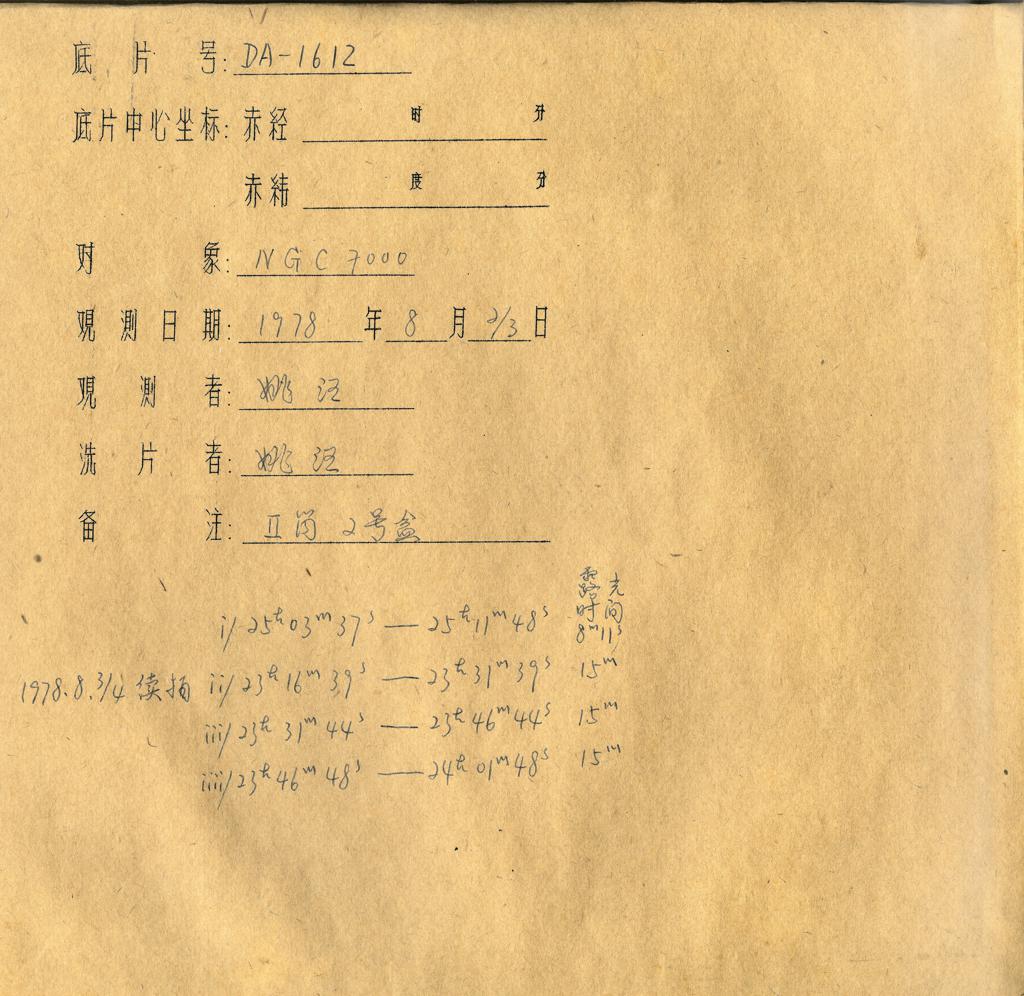 底片号: DA-1612
底片中心坐标: 赤经 时 分
赤纬 度 分
对象: NGC 7000
观测日期: 1978 年 8 月 2/3 日
观测者: 姚
洗片者: 姚
备注: II 2号盒
露光
时间
i/ 25h03m37s — 25h11m48s 8m11s
ii/ 23h16m39s — 23h31m39s 15m
1978.8.3/4 续拍
iii/ 23h31m44s — 23h46m44s 15m
iiii/ 23h46m48s — 24h01m48s 15m